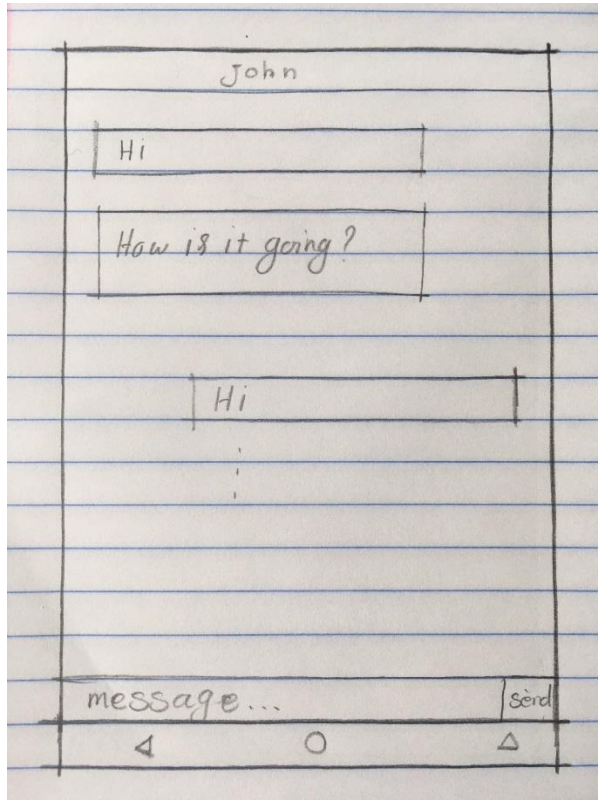 John
Hi
How is it going?
Hi
message... send